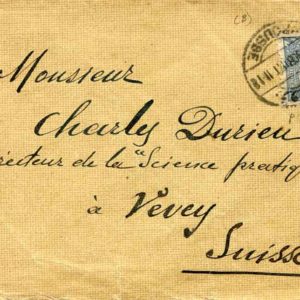 (8)
Monsieur
Charles Durieu
Directeur de la "Science pratiq
à Vevey
Suisse